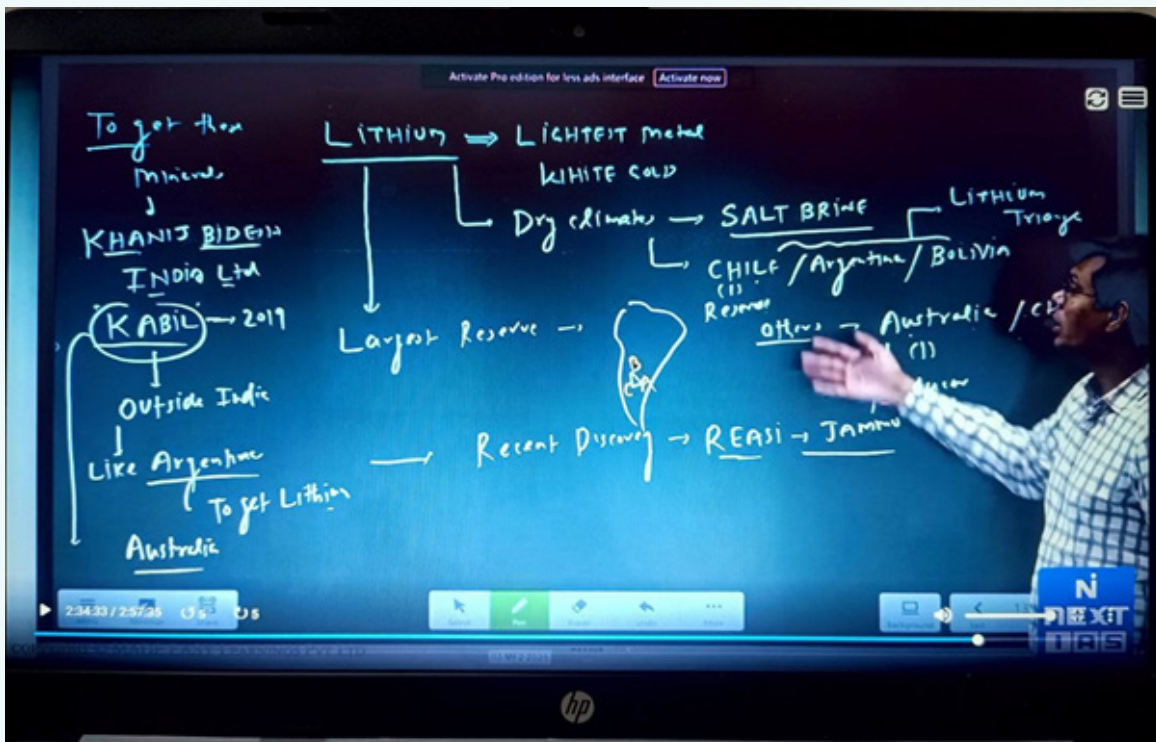 Activate Pro edition for less ads interface Activate now
To get these
Minerals
KHANIJ BIDESH
INDIA Ltd
KABIL → 2019
Outside India
Like Argentina
To get Lithium
Australia
LITHIUM ⇒ LIGHTEST Metal
WHITE GOLD
Dry climates → SALT BRINE
LITHIUM
Triangle
CHILE / Argentina / BOLIVIA
(1)
Reserve
Largest Reserve →
B
C A
others → Australia /
(1)
Recent Discovery → REASI → JAMMU
2:34:33 / 2:57:35
5
5
Select
Pen
Eraser
Undo
More
Background
NEXT
IAS
hp